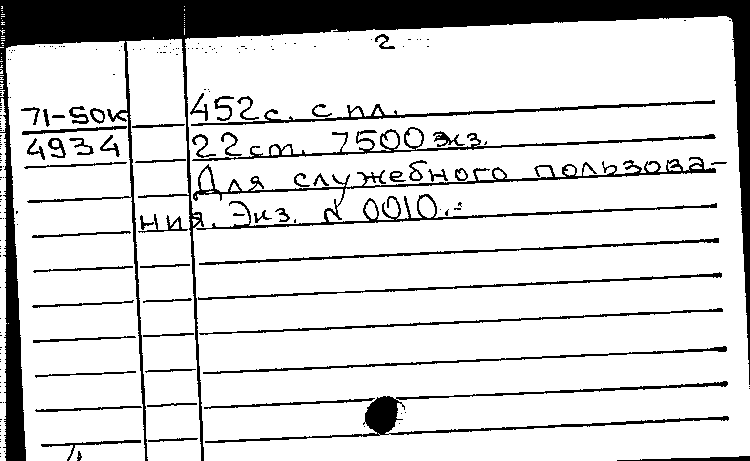 2
71-50к 452с. с пл.
4934 22см. 7500экз.
Для служебного пользова-
ния. Экз. № 0010.=